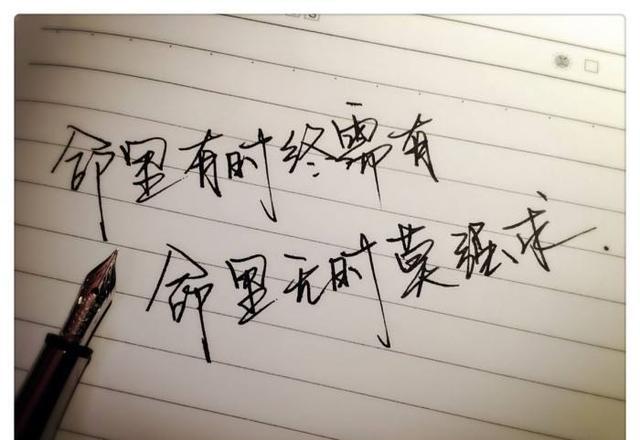 命里有时终需有
命里无时莫强求.